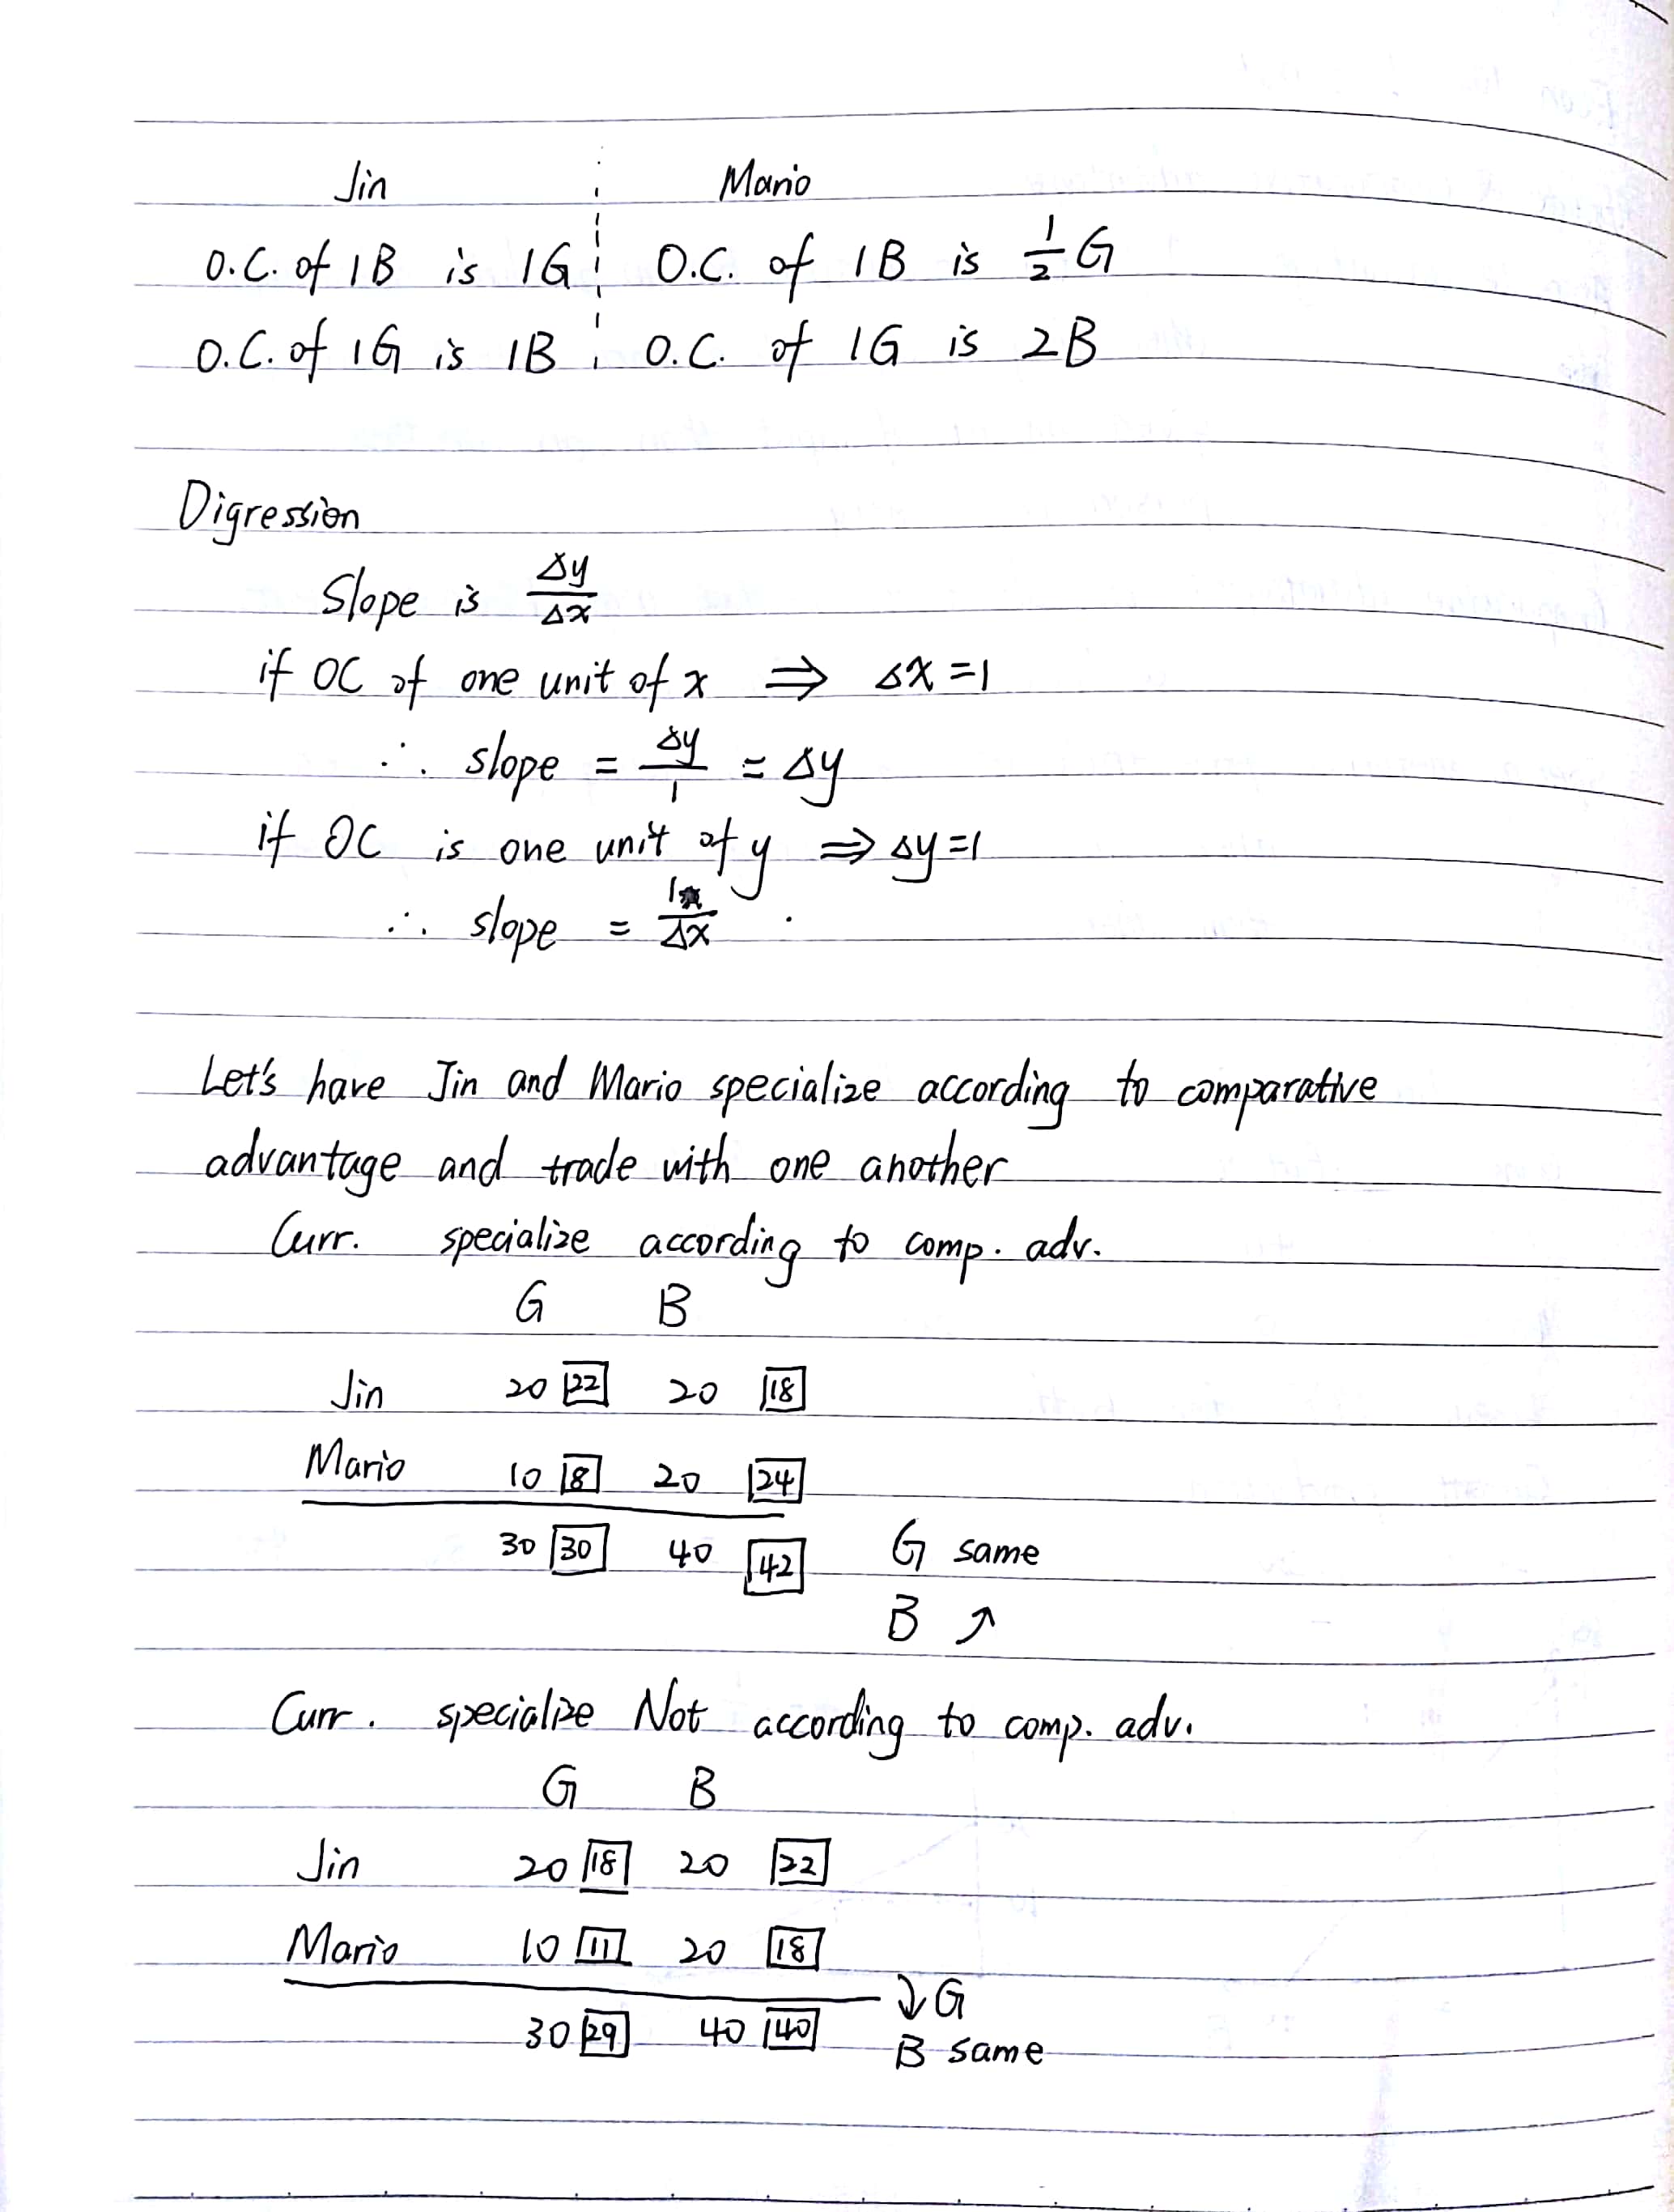 Jin Mario
O.C. of 1B is 1G O.C. of 1B is 1/2 G
O.C. of 1G is 1B O.C. of 1G is 2B
Digression
Slope is Δy/Δx
if OC of one unit of x ⇒ Δx = 1
∴ slope = Δy/1 = Δy
if OC is one unit of y ⇒ Δy = 1
∴ slope = 1/Δx
Let's have Jin and Mario specialize according to comparative
advantage and trade with one another
Curr. specialize according to comp. adv.
G B
Jin 20 22 20 18
Mario 10 8 20 24
30 30 40 42 G same
B ↗
Curr. specialize Not according to comp. adv.
G B
Jin 20 18 20 22
Mario 10 11 20 18
↓ G
30 29 40 40 B same